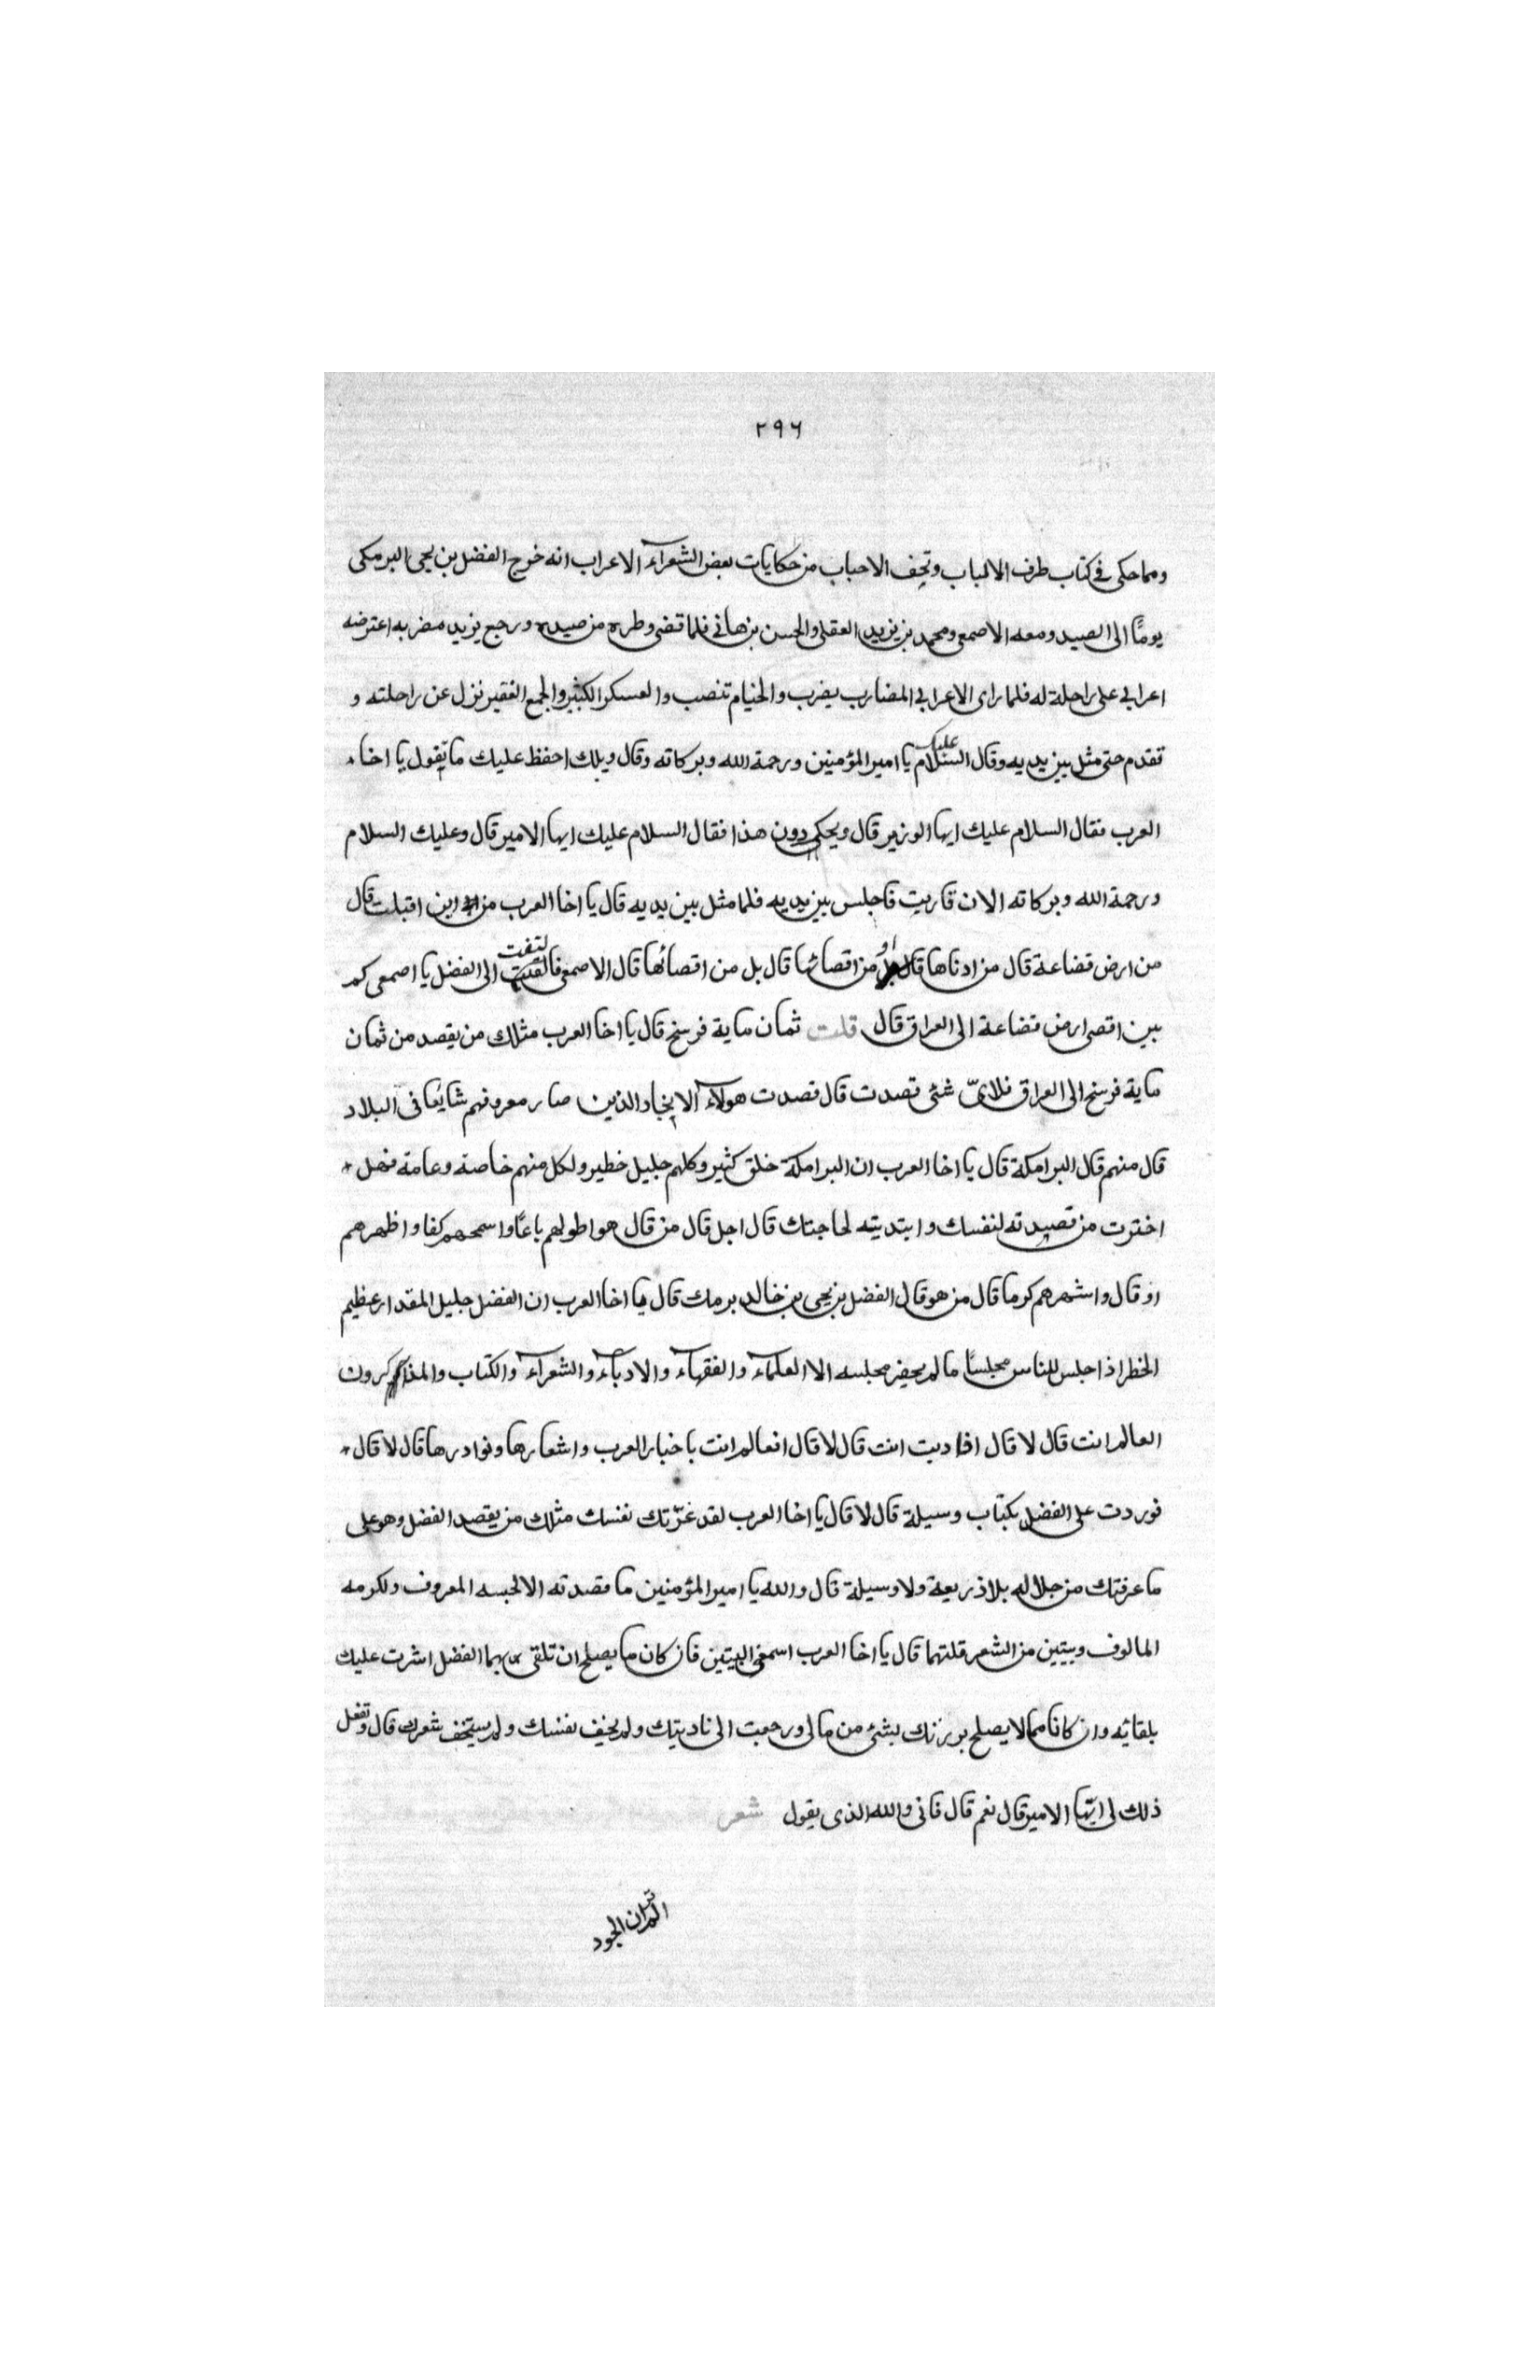 ٢٩٦
ومما حكى فى كتاب طرف الالباب وتحف الاحباب من حكايات بعض الشعرآء الاعراب انه خرج الفضل بن يحيى البرمكى
يومًا الى الصيد ومعه الاصمعى ومحمد بن يزيد العقلى والحسن بن هانى فلما قضى وطره من صيده ورجع يزيد مضربه اعترضه
اعرابي على راحلة له فلما راى الاعرابي المضارب يضرب والخيام تنصب والعسكر الكثير والجمع الفقير نزل عن راحلته و
تقدم حتى مثل بين يديه وقال السلام عليك يا امير المؤمنين ورحمة الله وبركاته وقال ويلك احفظ عليك ما تقول يا اخا
العرب فقال السلام عليك ايها الوزير قال ويحك دون هذا فقال السلام عليك ايها الامير قال وعليك السلام
ورحمة الله وبركاته الان قاربت فاجلس بين يديه فلما مثل بين يديه قال يا اخا العرب من اين اقبلت قال
من ارض قضاعة قال من ادناها قال او من اقصائها قال بل من اقصائها قال الاصمعى فالتفت الى الفضل يا اصمعى كم
بين اقصى ارض قضاعة الى العراق قال قلت ثمان ماية فرسخ قال يا اخا العرب مثلك من يقصد من ثمان
ماية فرسخ الى العراق فلاىّ شئى قصدت قال قصدت هولآء الانجاد الذين صار معروفهم شايعًا فى البلاد
قال منهم قال البرامكة قال يا اخا العرب ان البرامكة خلق كثير وكلهم جليل خطير ولكل منهم خاصة وعامة فهل
اخترت من قصيدته لنفسك وابتديته لحاجتك قال اجل قال من قال هو اطولهم باعًا واسمحهم كفا واظهرهم
او قال واشهرهم كرما قال من هو قال الفضل بن يحيى بن خالد برمك قال يا اخا العرب ان الفضل جليل المقدار عظيم
الخطر اذا جلس للناس مجلسًا ما لم يحضر مجلسه الا العلمآء والفقهآء والادبآء والشعرآء والكتاب والمذاكرون
العالم انت قال لا قال افاديب انت قال لا قال افعالم انت باخبار العرب واشعارها ونوادرها قال لا قال
فوردت على الفضل بكتاب وسيلة قال لا قال يا اخا العرب لقد غرّتك نفسك مثلك من يقصد الفضل وهو على
ما عرفتك من جلاله بلا ذريعة ولا وسيلة قال والله يا امير المؤمنين ما قصدته الا لحبسه المعروف ولكرمه
المالوف وبيتين من الشعر قلتهما قال يا اخا العرب اسمعنى البيتين فان كان ما يصلح ان تلقى بهما الفضل اشرت عليك
بلقائه وان كانا مما لا يصلح بررتك بشئ من مالى ورجعت الى ناديتك ولم يخف نفسك ولم يستخف شعرك قال وتفعل
ذلك لى ايّها الامير قال نعم قال فانى والله الذى يقول شعر
الم تر ان الجود